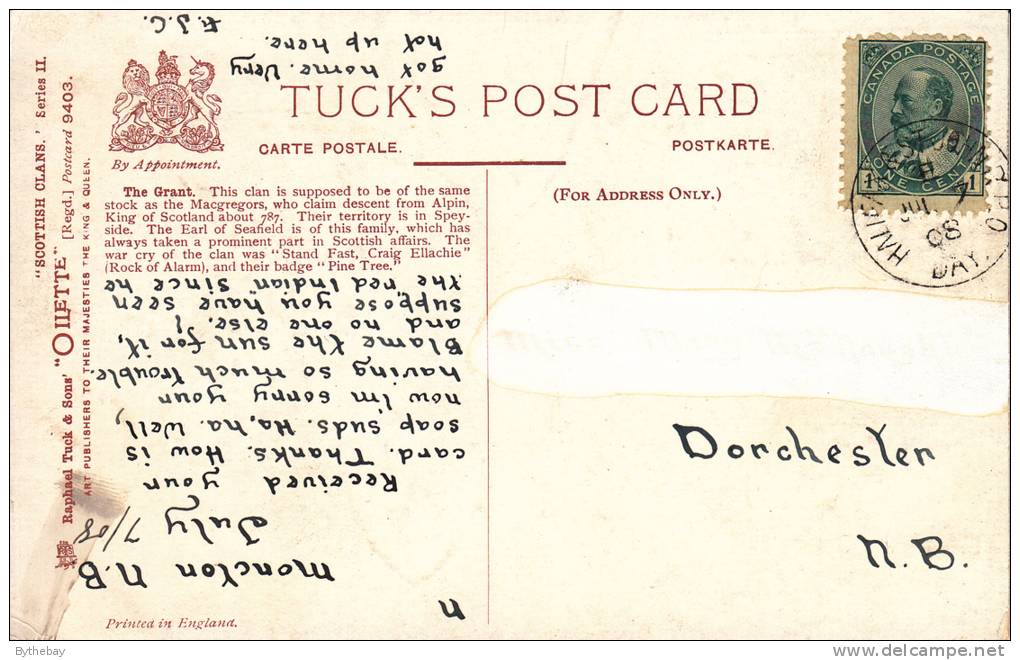 TUCK'S POST CARD
CARTE POSTALE.
POSTKARTE.
(FOR ADDRESS ONLY.)
By Appointment.
The Grant. This clan is supposed to be of the same
stock as the Macgregors, who claim descent from Alpin,
King of Scotland about 787. Their territory is in Spey-
side. The Earl of Seafield is of this family, which has
always taken a prominent part in Scottish affairs. The
war cry of the clan was "Stand Fast, Craig Ellachie"
(Rock of Alarm), and their badge "Pine Tree."
"SCOTTISH CLANS." Series II.
Raphael Tuck & Sons' "OILETTE" [Regd.] Postcard 9403.
ART PUBLISHERS TO THEIR MAJESTIES THE KING & QUEEN.
Printed in England.
CANADA POSTAGE
1 ONE CENT 1
JUL 7
08
DAY
Dorchester
N.B.
Moncton N.B
July 7/08
Received your
card. Thanks. How is
soap suds. Ha, ha. Well,
now I'm sorry your
having so much trouble.
Blame the sun for it,
and no one else.
suppose you have seen
the "red Indian" since he
got home. Very
hot up here.
F.J.C.